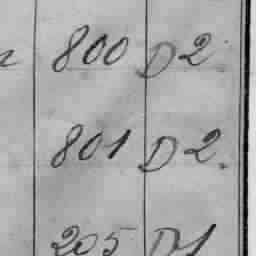 800 D2
801 D2.
205 D1